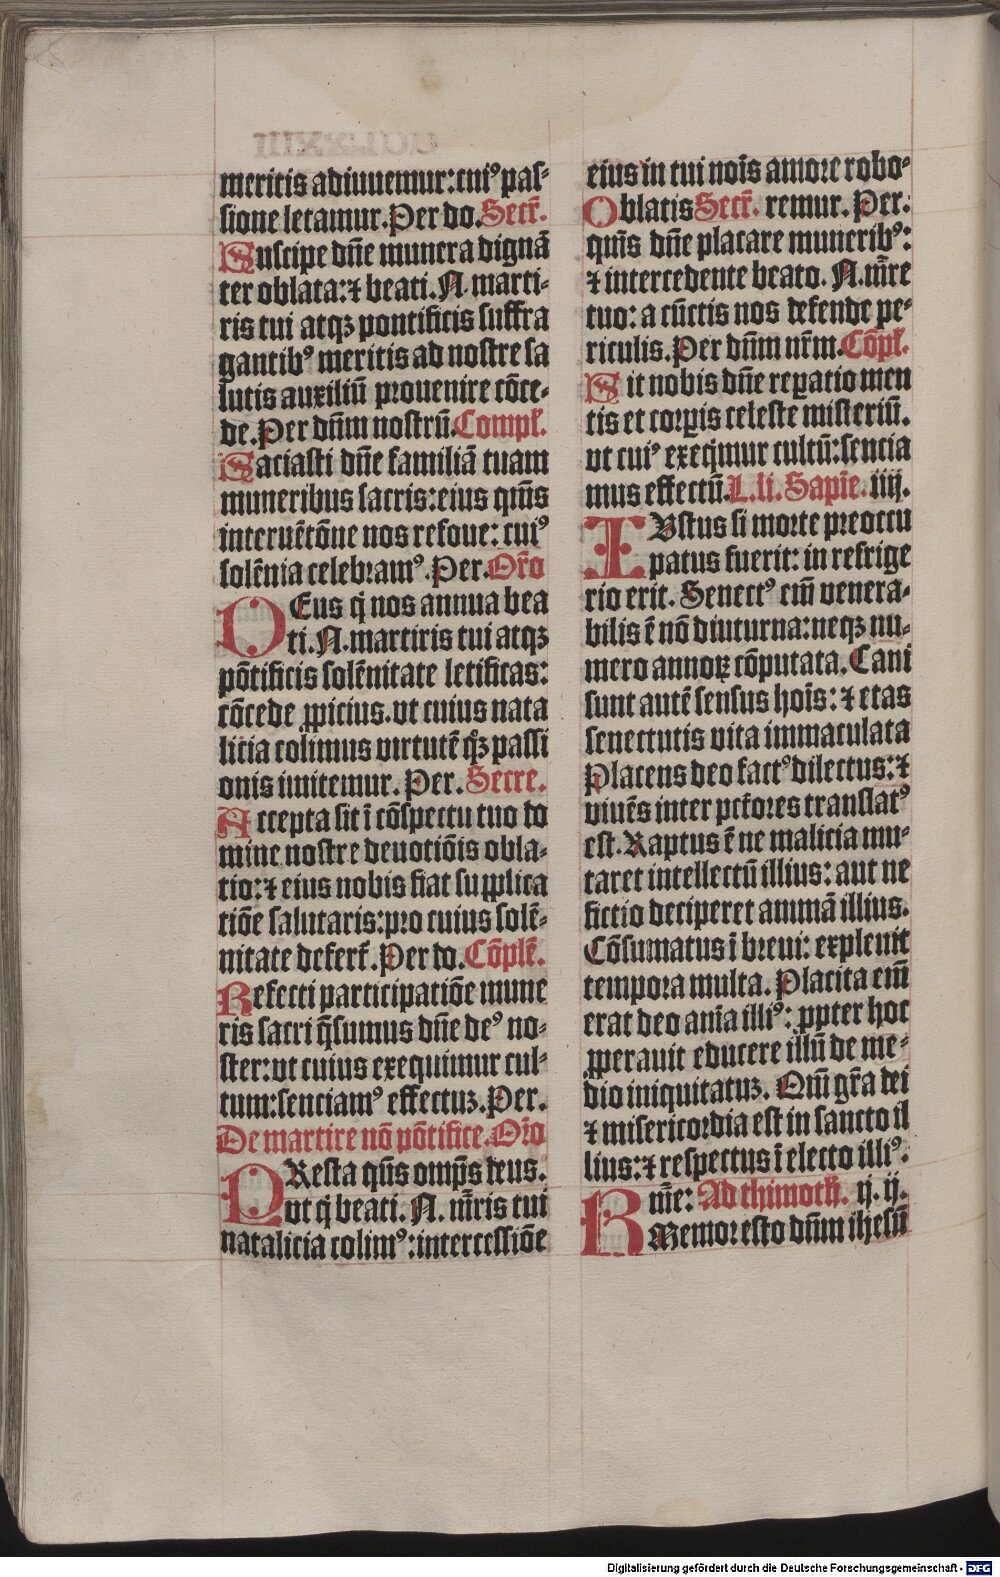 meritis adiuuemur: cui⁹ pas-
sione letamur. Per do. Secr̄.
Suscipe dn̄e munera dignā
ter oblata: ⁊ beati. N. marti-
ris tui atqꝫ pontificis suffra
gantib⁹ meritis ad nostre sa
lutis auxiliū prouenire cōce-
de. Per dn̄m nostrū. Compl̄.
Saciasti dn̄e familiā tuam
muneribus sacris: eius qm̄s
interuētōne nos refoue: cui⁹
solēnia celebram⁹. Per. Or̄o
DEus q̇ nos annua bea
ti. N. martiris tui atqꝫ
pōtificis solēnitate letificas:
cōcede ꝓpicius. vt cuius nata
licia colimus virtutē qͦꝫ passi
onis imitemur. Per. Secre.
Accepta sit ī cōspectu tuo do
mine nostre deuotiōis obla-
tio: ⁊ eius nobis fiat supplica
tiōe salutaris: pro cuius solē-
nitate defert̄. Per do. Cōplē.
Refecti participatiōe mune
ris sacri q̄sumus dn̄e de⁹ no-
ster: vt cuius exequimur cul-
tum: senciam⁹ effectuꝫ. Per.
De martire nō pōtifice. Or̄o
PResta qūs omp̄s deus.
vt q̇ beati. N. mr̄is tui
natalicia colim⁹: intercessiōe
eius in tui noīs amore robo-
Oblatis Secr̄. remur. Per.
qūs dn̄e placare munerib⁹:
⁊ intercedente beato. N. mr̄e
tuo: a cūctis nos defende pe-
riculis. Per dn̄m nr̄m. Cōpl̄.
Sit nobis dn̄e reꝑatio men
tis et corꝑis celeste misteriū.
vt cui⁹ exeq̇mur cultū: sencia
mus effectū. L. li. Sapīe. iiij.
IVstus si morte preoccu
patus fuerit: in refrige
rio erit. Senect⁹ em̄ venera-
bilis ē nō diuturna: neqꝫ nu-
mero annoꝝ cōputata. Cani
sunt autē sensus hoīs: ⁊ etas
senectutis vita immaculata
Placens deo fact⁹ dilectus: ⁊
viuēs inter pctōres translat⁹
est. Raptus ē ne malicia mu-
taret intellectū illius: aut ne
fictio deciperet animā illius.
Cōsumatus ī breui: expleuit
tempora multa. Placita em̄
erat deo anīa illi⁹: ꝓpter hoc
ꝓperauit educere illū de me-
dio iniquitatuꝫ. Qm̄ gr̄a dei
⁊ misericordia est in sancto il
lius: ⁊ respectus ī electo illi⁹.
Rm̄e: Ad thimoth̄. ij. ij.
Memor esto dn̄m ihesū
Digitalisierung gefördert durch die Deutsche Forschungsgemeinschaft - DFG